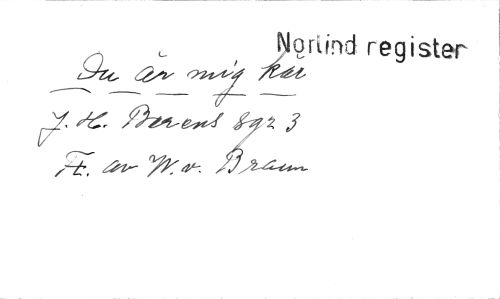 Norlind register
Du är mig kär
J. H. Berens 8qr 3
Ft. av W. v. Braun